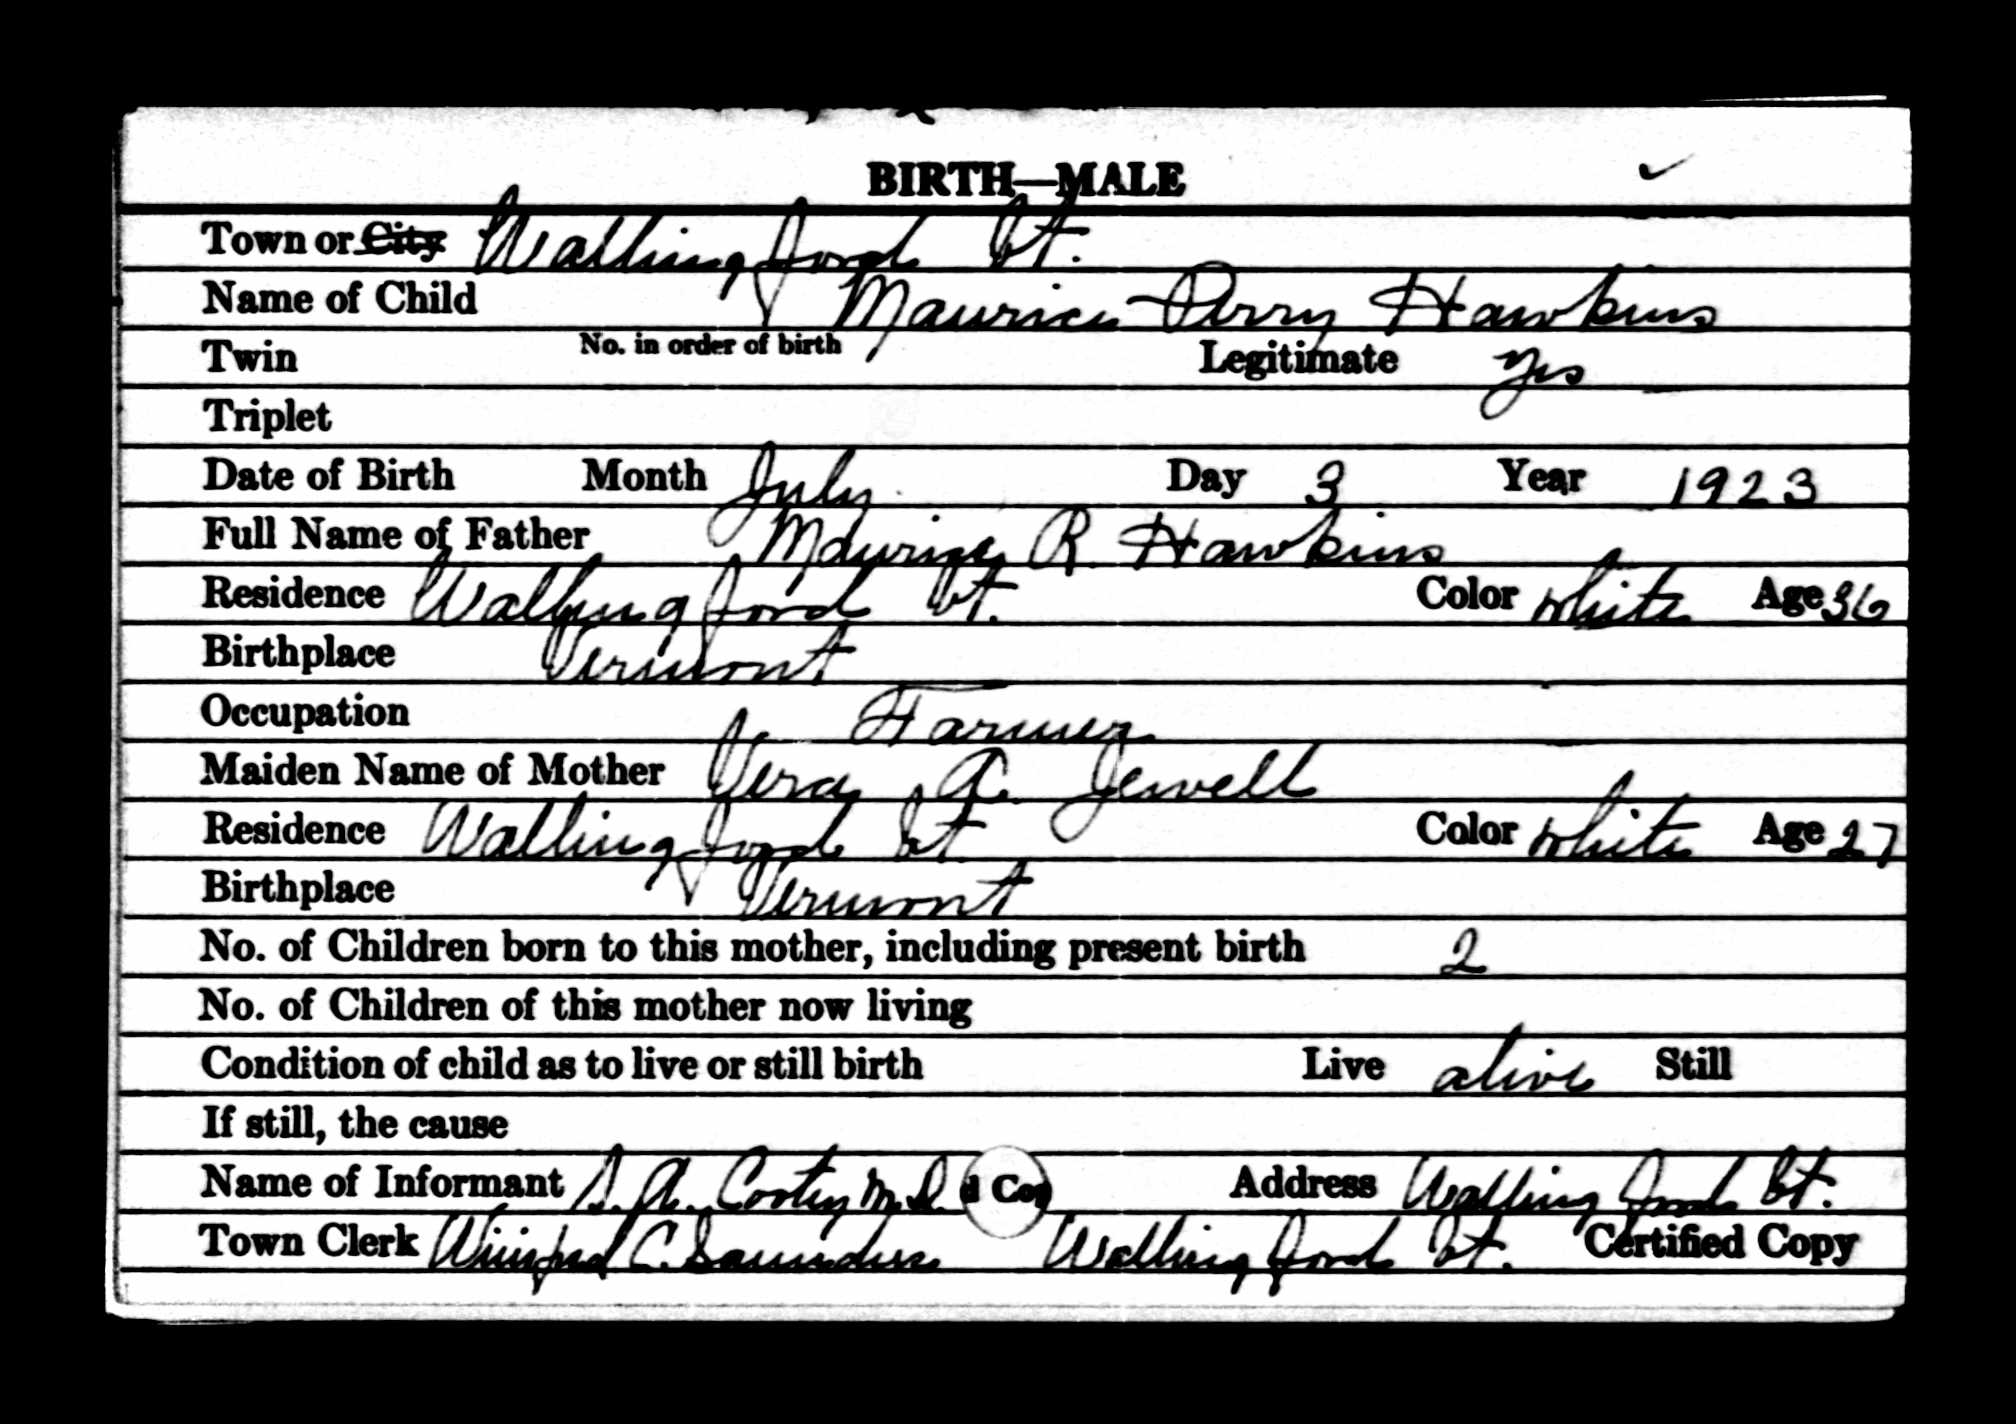 BIRTH—MALE
Town or City Wallingford Vt.
Name of Child Maurice Perry Hawkins
Twin No. in order of birth Legitimate Yes
Triplet
Date of Birth Month July Day 3 Year 1923
Full Name of Father Maurice R. Hawkins
Residence Wallingford Vt. Color white Age 36
Birthplace Vermont
Occupation Farmer
Maiden Name of Mother Vera A. Jewell
Residence Wallingford Vt. Color white Age 27
Birthplace Vermont
No. of Children born to this mother, including present birth 2
No. of Children of this mother now living
Condition of child as to live or still birth Live alive Still
If still, the cause
Name of Informant S. A. Cootey M.D. d Cop Address Wallingford Vt.
Town Clerk Winifred C. Saunders Wallingford Vt. Certified Copy